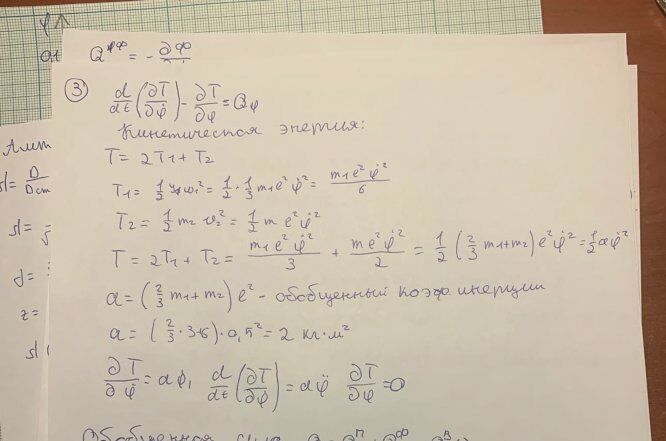 Q^φφ = - ∂Φ
③
d/dt (∂T/∂φ̇) - ∂T/∂φ = Qφ
Кинетическая энергия:
T = 2T₁ + T₂
T₁ = 1/2 Jω₁² = 1/2 · 1/3 m₁ℓ²φ̇² = m₁ℓ²φ̇²/6
T₂ = 1/2 m₂ v₂² = 1/2 m ℓ²φ̇²
T = 2T₁ + T₂ = m₁ℓ²φ̇²/3 + mℓ²φ̇²/2 = 1/2 (2/3 m₁+m₂) ℓ²φ̇² = 1/2 aφ̇²
a = (2/3 m₁ + m₂) ℓ² - обобщенный коэф инерции
a = (2/3 · 3+6) · 0,5² = 2 кг·м²
∂T/∂φ̇ = aφ̇, d/dt (∂T/∂φ̇) = aφ̈ ∂T/∂φ = 0
Обобщенная сила